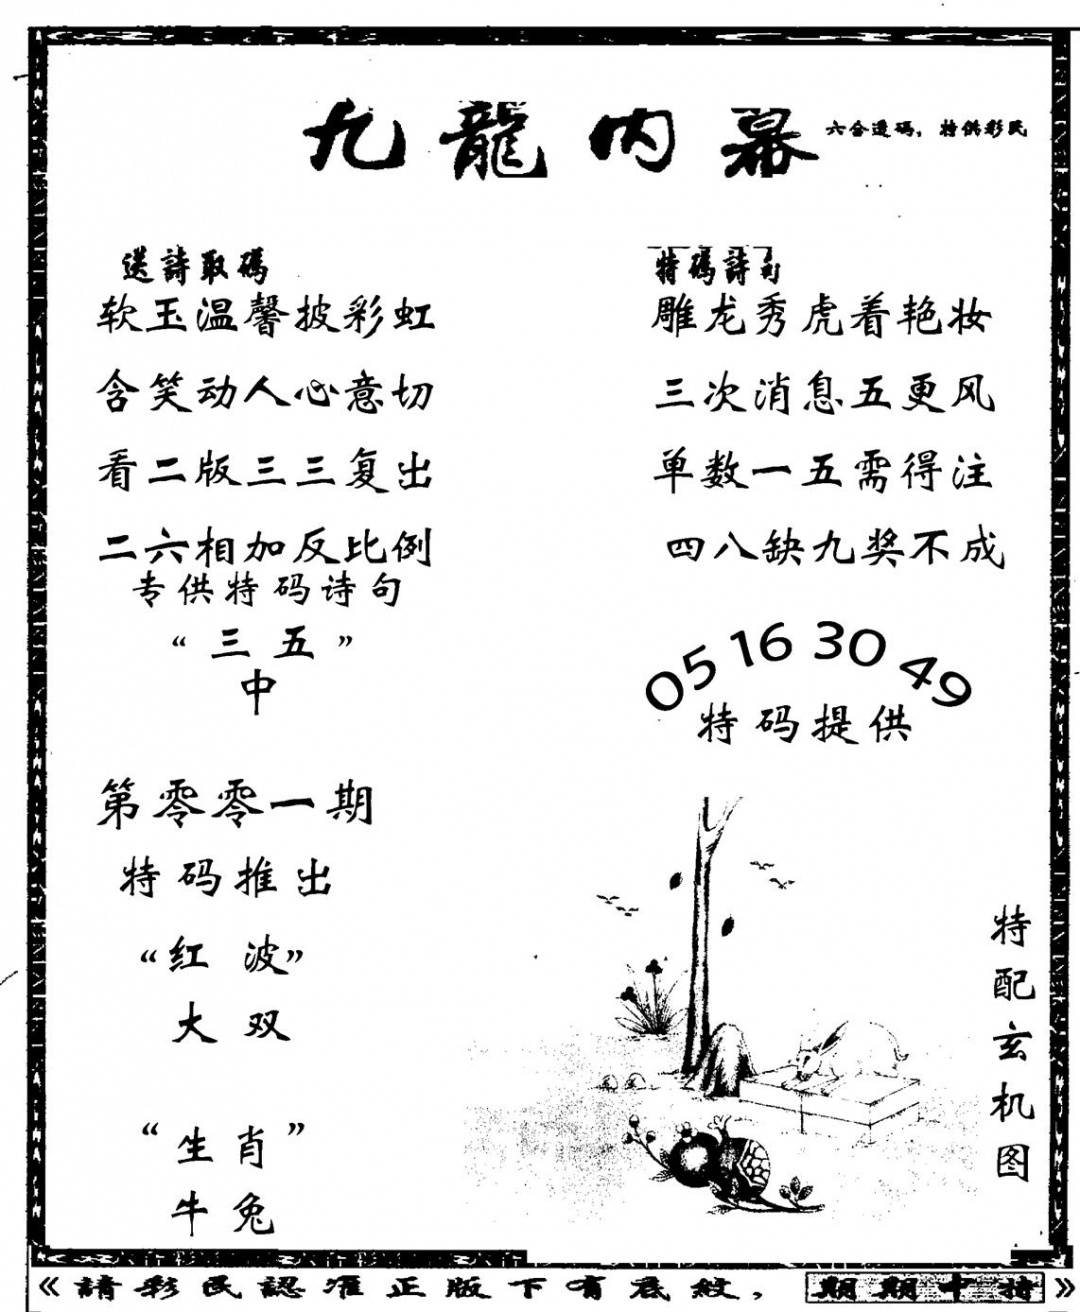 九龍内幕
六合透碼，特供彩民
送詩取碼
软玉温馨披彩虹
含笑动人心意切
看二版三三复出
二六相加反比例
专供特码诗句
“三五”
中
第零零一期
特码推出
“红波”
大双
“生肖”
牛兔
特碼詩句
雕龙秀虎着艳妆
三次消息五更风
单数一五需得注
四八缺九奖不成
05 16 30 49
特码提供
特配玄机图
《請彩民認准正版下有底紋，期期中特》